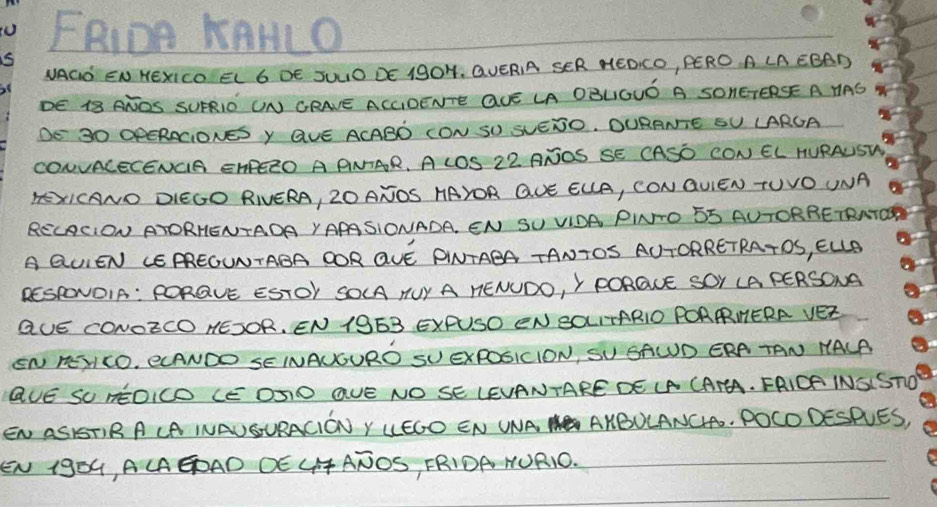 FRIDA KAHLO
NACIÓ EN MEXICO EL 6 DE JULIO DE 1904. QUERIA SER MEDICO, PERO A LA EDAD
DE 18 AÑOS SUFRIO UN GRAVE ACCIDENTE QUE LA OBLIGUÓ A SOMETERSE A MAS
DE 30 OPERACIONES Y QUE ACABÓ CON SU SUEÑO. DURANTE SU LARGA
CONVALECENCIA EMPEZO A PINTAR. A LOS 22 AÑOS SE CASÓ CON EL MURALISTA
MEXICANO DIEGO RIVERA, 20 AÑOS MAYOR QUE ELLA, CON QUIEN TUVO UNA
RELACION ATORMENTADA Y APASIONADA. EN SU VIDA, PINTO 55 AUTORRETRATOS
A QUIEN LE PREGUNTABA POR QUÉ PINTABA TANTOS AUTORRETRATOS, ELLA
RESPONDIA: PORQUE ESTOY SOLA MUY A MENUDO, Y PORQUE SOY LA PERSONA
QUE CONOZCO MEJOR. EN 1953 EXPUSO EN SOLITARIO POR PRIMERA VEZ
EN MEXICO. CUANDO SE INAUGURÓ SU EXPOSICION, SU SALUD ERA TAN MALA
QUE SU MÉDICO LE DIJO QUE NO SE LEVANTARE DE LA CAMA. FRIDA INSISTIO
EN ASISTIR A LA INAUGURACIÓN Y LLEGO EN UNA AMBULANCIA. POCO DESPUES,
EN 1954, A LA EDAD DE 47 AÑOS, FRIDA MURIO.